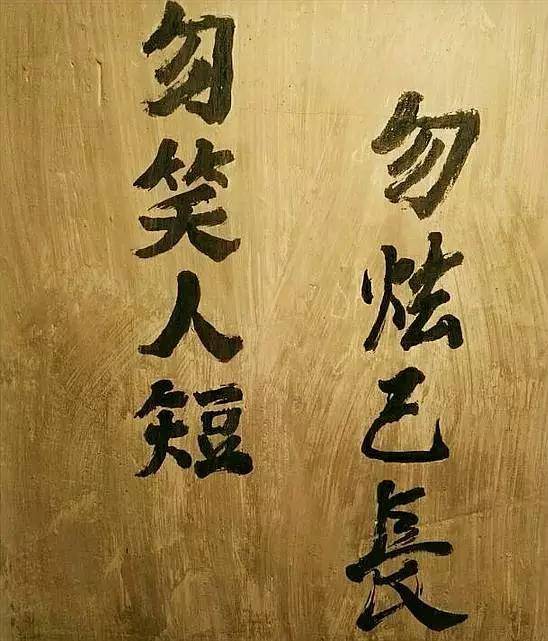 勿炫己長
勿笑人短